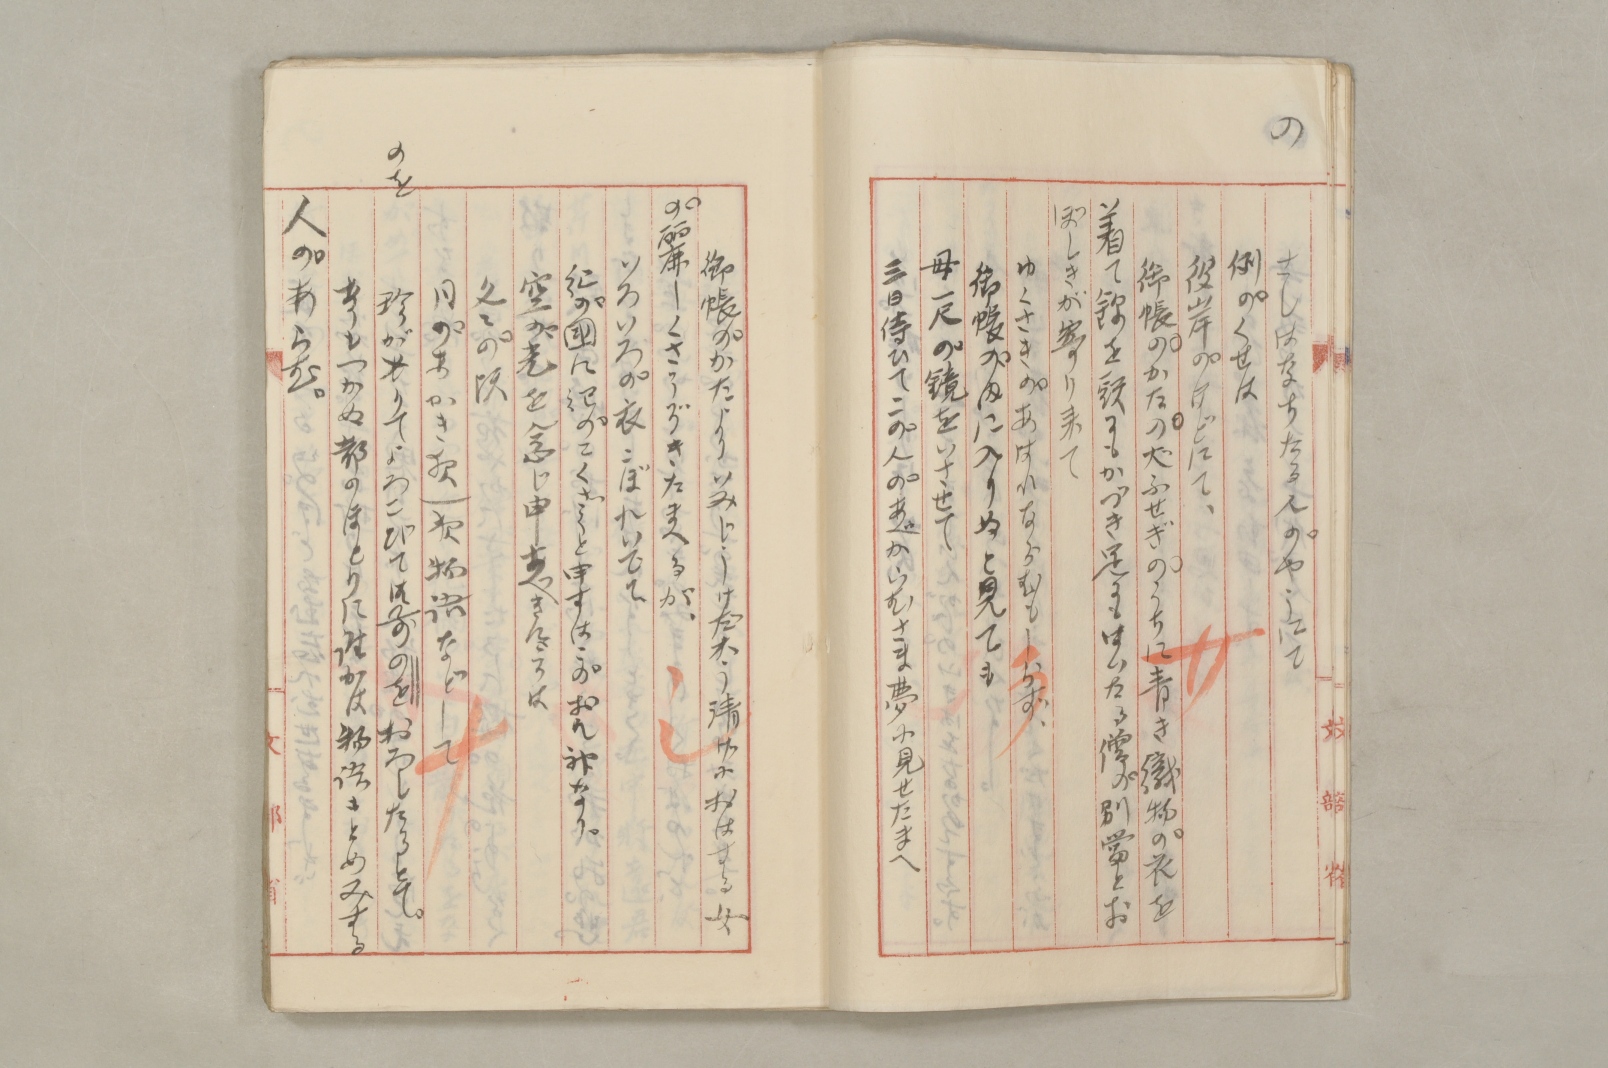 の
さしはなちたる人のやうにて
例のくせは
彼岸のほどにて、
御帳のかたの犬ふせぎのうちに青き織物の衣を
着て錦を頭にもかづき足にもはいたる僧の別當とお
ぼしきが寄り来て
ゆくさきのあはれならむもしらず、
御帳の内に入りぬと見ても
母一尺の鏡をいさせて
三日侍ひてこの人のあべからむさま夢に見せたまへ
サ
う
御帳のかたよりいみじうけだかう清げにおはする女
の麗しくさうぞきたまへるが、
いろいろの衣こぼれいでて
紀の國に紀のこくざうと申すはこのおん神なり。
空の光を念じ申すべきにこそは
し
月のあかき夜、夜物語などして
ナ
のを
珍がりてよろこびて御前のをおろしたるとて。
ありもつかぬ都のほとりに誰かは物語もとめみする
人のあらむ。
文部省
文部省